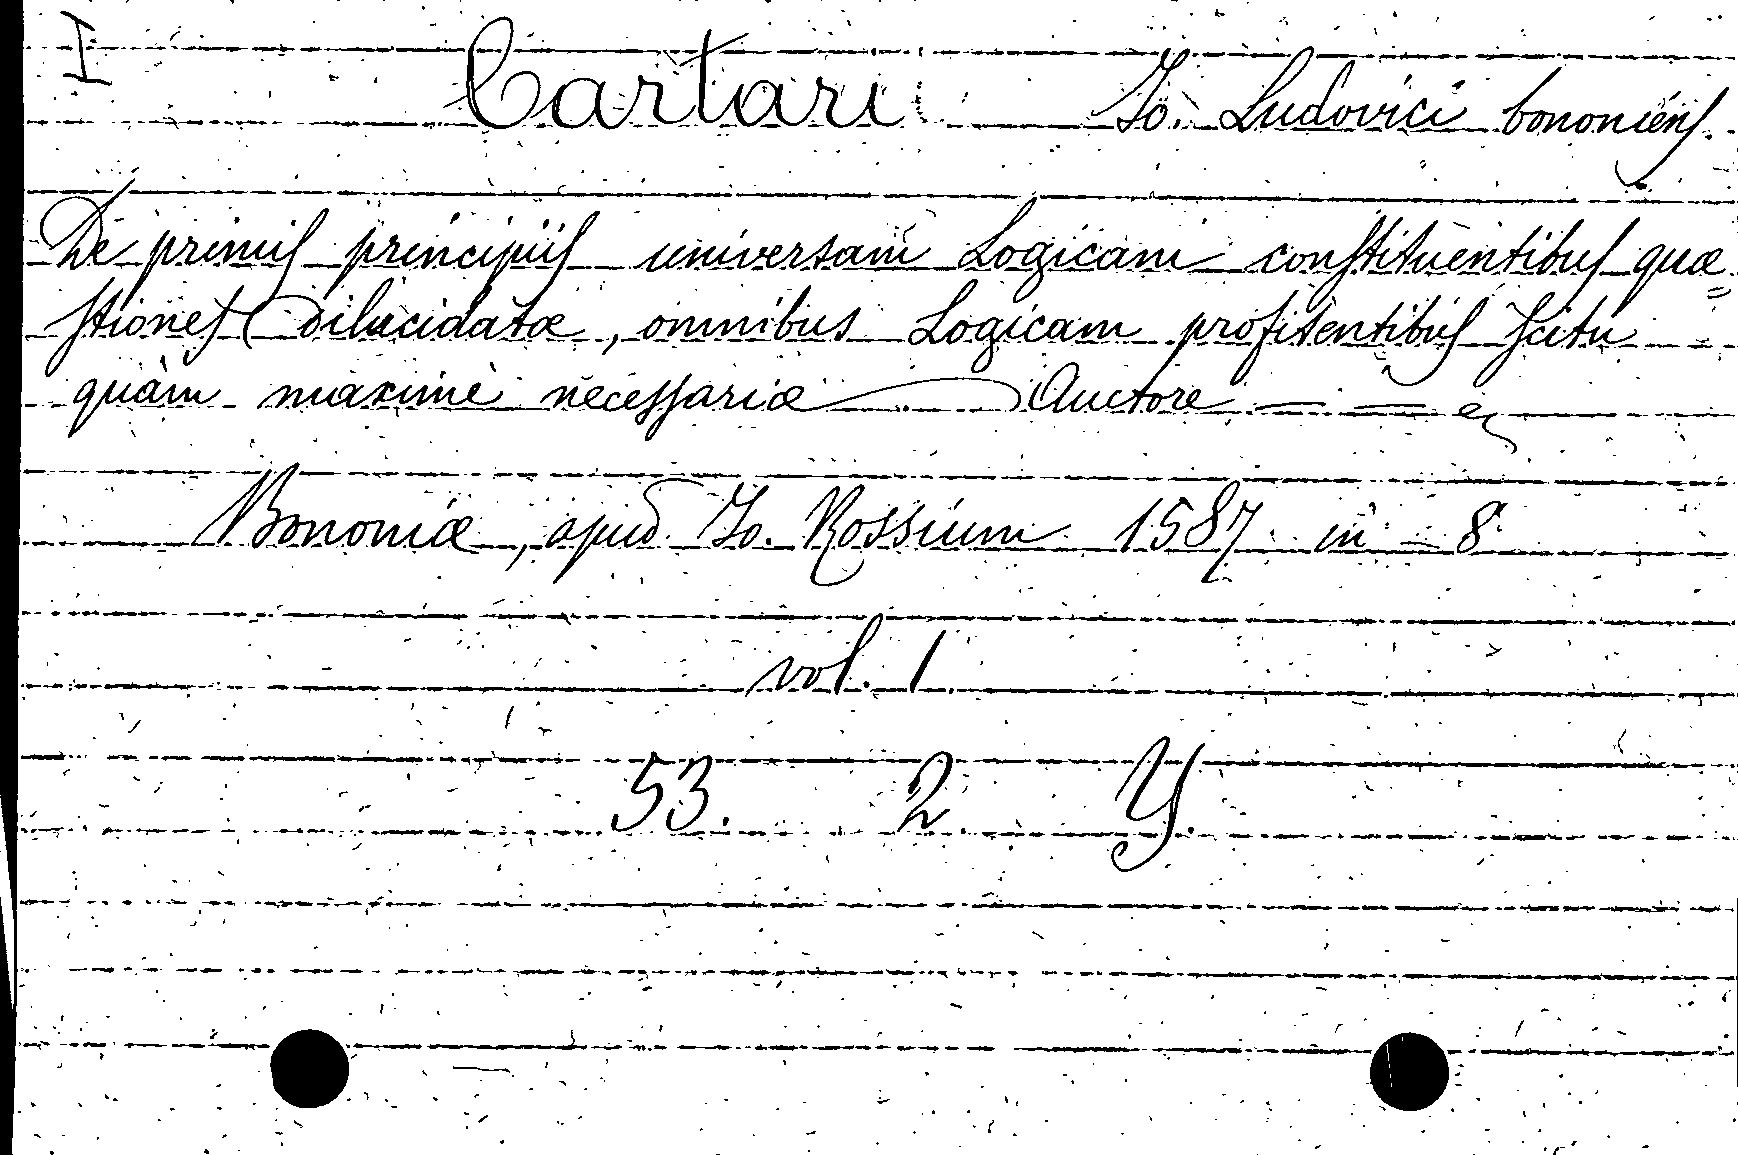 I Cartari Io. Ludovici bononienſ.
De primiſ principiiſ universam Logicam conſtituentibuſ quæ=
ſtioneſ dilucidatæ, omnibus Logicam profitentibuſ ſcitu
quàm maximè neceſſariæ — Auctore — — &
Bononiæ, apud Io. Rossium 1587 in – 8
vol. 1
53. 2. Y.